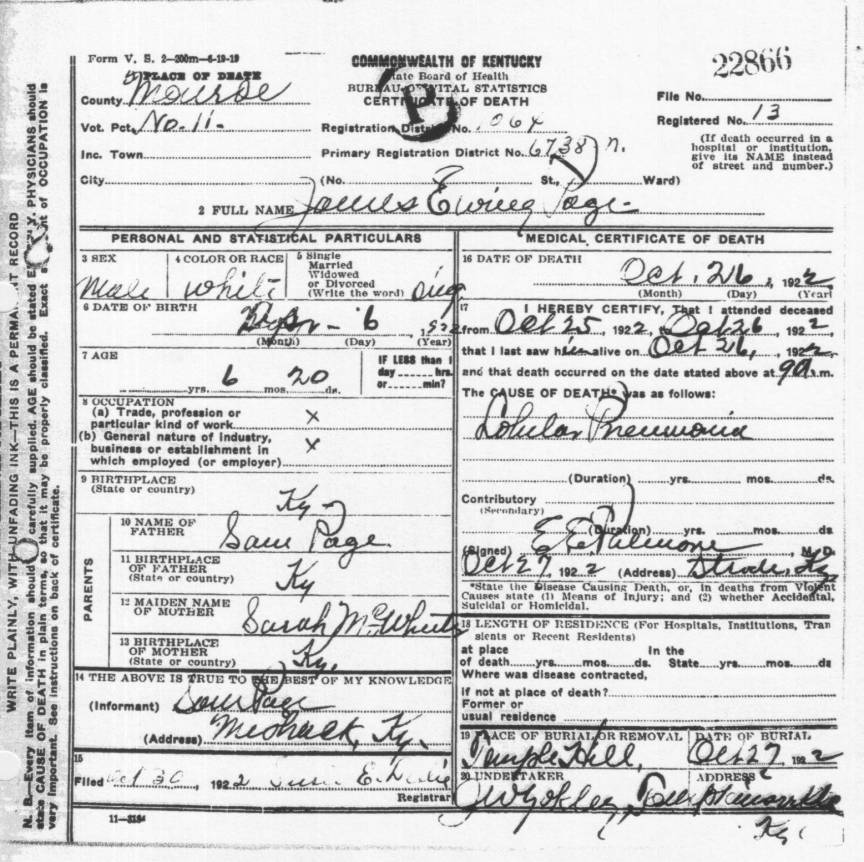 Form V. S. 2—200m—6-19-19
COMMONWEALTH OF KENTUCKY
State Board of Health
BUREAU OF VITAL STATISTICS
CERTIFICATE OF DEATH
B
22866
1 PLACE OF DEATH
County Monroe
Vot. Pct. No. 11-
Inc. Town
City
Registration District No. 1064
Primary Registration District No. 6738
(No. St., Ward)
File No.
Registered No. 13
(If death occurred in a
hospital or institution,
give its NAME instead
of street and number.)
2 FULL NAME James Ewing Page
PERSONAL AND STATISTICAL PARTICULARS
3 SEX
Male
4 COLOR OR RACE
White
5 Single
Married
Widowed
or Divorced
(Write the word) Sing
6 DATE OF BIRTH
6 1922
(Month) (Day) (Year)
7 AGE
yrs. 6 mos. 20 ds.
IF LESS than 1
day hrs.
or min?
8 OCCUPATION
(a) Trade, profession or
particular kind of work X
(b) General nature of industry,
business or establishment in X
which employed (or employer)
9 BIRTHPLACE
(State or country)
Ky
PARENTS
10 NAME OF
FATHER
Sam Page
11 BIRTHPLACE
OF FATHER
(State or country)
Ky
12 MAIDEN NAME
OF MOTHER
Sarah
13 BIRTHPLACE
OF MOTHER
(State or country)
Ky.
14 THE ABOVE IS TRUE TO THE BEST OF MY KNOWLEDGE
(Informant) Sam Page
(Address) Meshack, Ky.
15
Filed Oct 30, 1922
Registrar
11—3184
MEDICAL CERTIFICATE OF DEATH
16 DATE OF DEATH
Oct. 26, 1922
(Month) (Day) (Year)
17 I HEREBY CERTIFY, That I attended deceased
from Oct 25, 1922, to Oct 26, 1922,
that I last saw him alive on Oct 26, 1922
and that death occurred on the date stated above at 9 a.m.
The CAUSE OF DEATH* was as follows:
Lobular Pneumonia
(Duration) yrs. mos. ds.
Contributory
(Secondary)
(Duration) yrs. mos. ds.
(Signed) E. E. Palmore, M.D.
Oct 27, 1922 (Address) Ky.
*State the Disease Causing Death, or, in deaths from Violent
Causes state (1) Means of Injury; and (2) whether Accidental,
Suicidal or Homicidal.
18 LENGTH OF RESIDENCE (For Hospitals, Institutions, Tran
sients or Recent Residents)
at place In the
of death yrs. mos. ds. State yrs. mos. ds
Where was disease contracted,
if not at place of death?
Former or
usual residence
19 PLACE OF BURIAL OR REMOVAL
Temple Hill,
DATE OF BURIAL
Oct 27 1922
20 UNDERTAKER
ADDRESS
Ky.
WRITE PLAINLY, WITH UNFADING INK—THIS IS A PERMANENT RECORD
N. B.—Every item of information should be carefully supplied. AGE should be stated EXACTLY. PHYSICIANS should
state CAUSE OF DEATH in plain terms, so that it may be properly classified. Exact statement of OCCUPATION is
very important. See instructions on back of certificate.